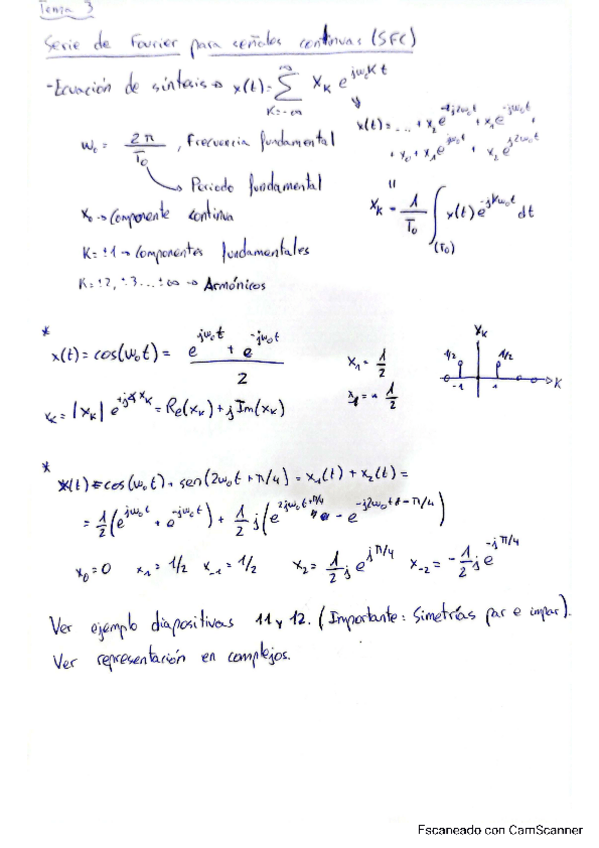 Tema 3
Serie de Fourier para señales continuas (SFC)
-Ecuación de síntesis → x(t) = ∑_{K=-∞}^{∞} X_K e^{jω₀Kt}
x(t) = ... + x₂ e^{-j2ω₀t} + x₁ e^{-jω₀t} +
+ x₀ + x₁ e^{jω₀t} + x₂ e^{j2ω₀t}
ω₀ = 2π/T₀, Frecuencia fundamental
Periodo fundamental
X_K = 1/T₀ ∫_{(T₀)} x(t) e^{-jKω₀t} dt
x₀ → Componente continua
K = ±1 → Componentes fundamentales
K = ±2, ±3 ... ±∞ → Armónicos
* x(t) = cos(ω₀t) = (e^{jω₀t} + e^{-jω₀t})/2
x₁ = 1/2
X_K
1/2 1/2
-1 1 K
x_K = |x_K| e^{j∡x_K} = Re(x_K) + j Im(x_K)
* x(t) = cos(ω₀t) + sen(2ω₀t + π/4) = x₁(t) + x₂(t) =
= 1/2 (e^{jω₀t} + e^{-jω₀t}) + 1/2 j (e^{2jω₀t+π/4} - e^{-j2ω₀t-π/4})
x₀ = 0 x₁ = 1/2 x₋₁ = 1/2 x₂ = 1/2 j e^{jπ/4} x₋₂ = -1/2 j e^{-jπ/4}
Ver ejemplo diapositivas 11 y 12. (Importante: Simetrías par e impar).
Ver representación en complejos.
Escaneado con CamScanner